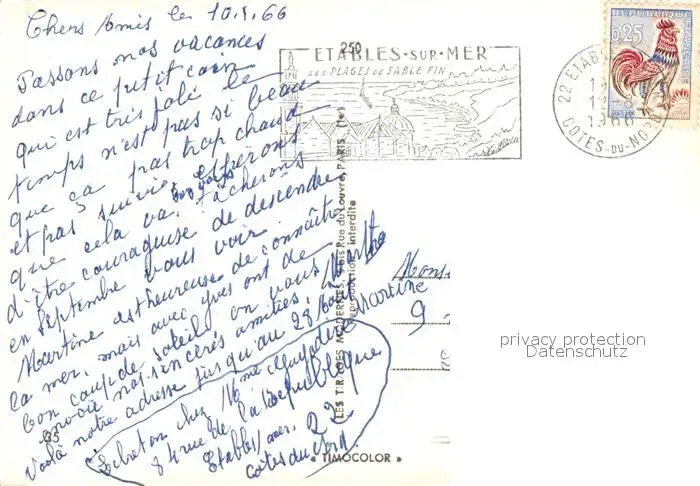 Chers Amis le 10.8.66
Passons nos vacances
dans ce petit coin
qui est très joli le
temps n'est pas si beau
que ça pas trop chaud
et pas suivie espérons
que cela va tâcherons
d'être courageuse de descendre
en Septembre vous voir
Martine est heureuse de connaître
la mer, mais avec Yves ont de
bon coup de soleil on vous
envoie nos sincères amitiés.
Voilà notre adresse jusqu'au 28
chez Mme
84 rue de la République
Etables/mer. 22
Côtes du Nord.
Martine
250
ETABLES-SUR-MER
SES PLAGES DE SABLE FIN
22 ETABLES
1966
COTES-DU-NORD
0,25
LES TIRAGES MODERNES, Rue du Louvre, PARIS. (1er)
Reproduction interdite
Mons
9
G5
« TIMOCOLOR »
privacy protection
Datenschutz